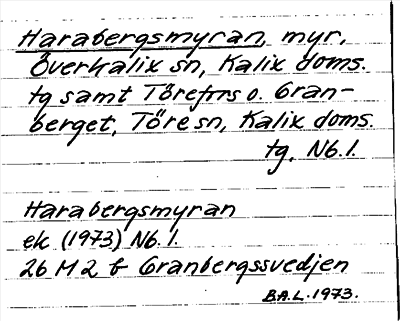 Harabergsmyran, myr,
Överkalix sn, Kalix doms.
tg samt Töre frs o. Gran-
berget, Töre sn, Kalix doms.
tg, Nb. l.
Harabergsmyran
ek (1973) Nb. l.
26 M 2 b Granbergssvedjen
B.A.L. 1973.